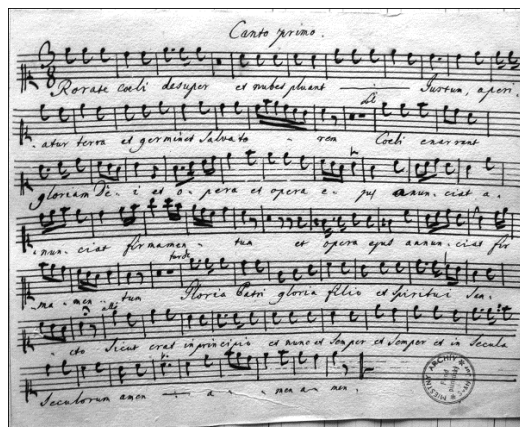 Canto primo.
3/8
Rorate coeli desuper et nubes pluant Justum, aperi.
atur terra et germinet Salvato - rem Coeli enarrant
gloriam De - i et o - pera et opera e - jus annun - ciat a -
- nun - ciat firmamen - tum et opera ejus annun - ciat fir
tarde
- ma - men - tum Gloria Patri gloria filio et Spiritui San -
all:
- cto Sicut erat in principio et nunc et Semper et Semper et in Secula
Seculorum amen - a - men a - men.